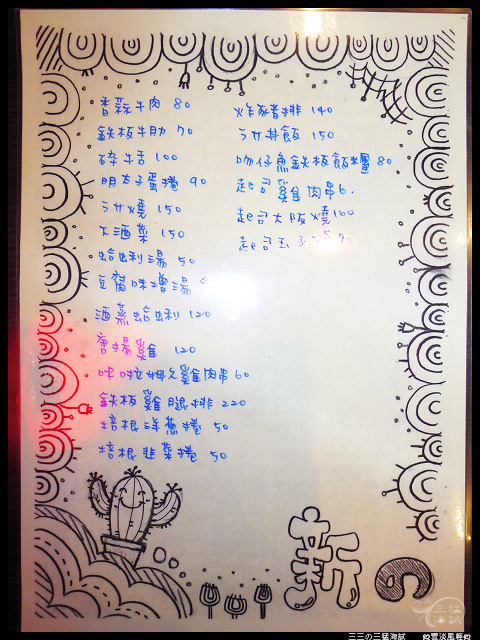 香蒜牛肉 80
鉄板牛肋 70
碎牛舌 100
明太子蛋捲 90
うサ燒 150
大酒菜 150
蛤蜊湯 50
豆腐味增湯
酒蒸蛤蜊 120
唐揚雞 120
咔啦姆久雞肉串 60
鉄板雞腿排 220
培根洋蔥捲 50
培根韭菜捲 50
炸豬排 140
うサ丼飯 150
吻仔魚鉄板飯糰 80
起司雞肉串 6
起司大阪燒 160
起司玉子
新
三三の三猛海試
雲淡風輕